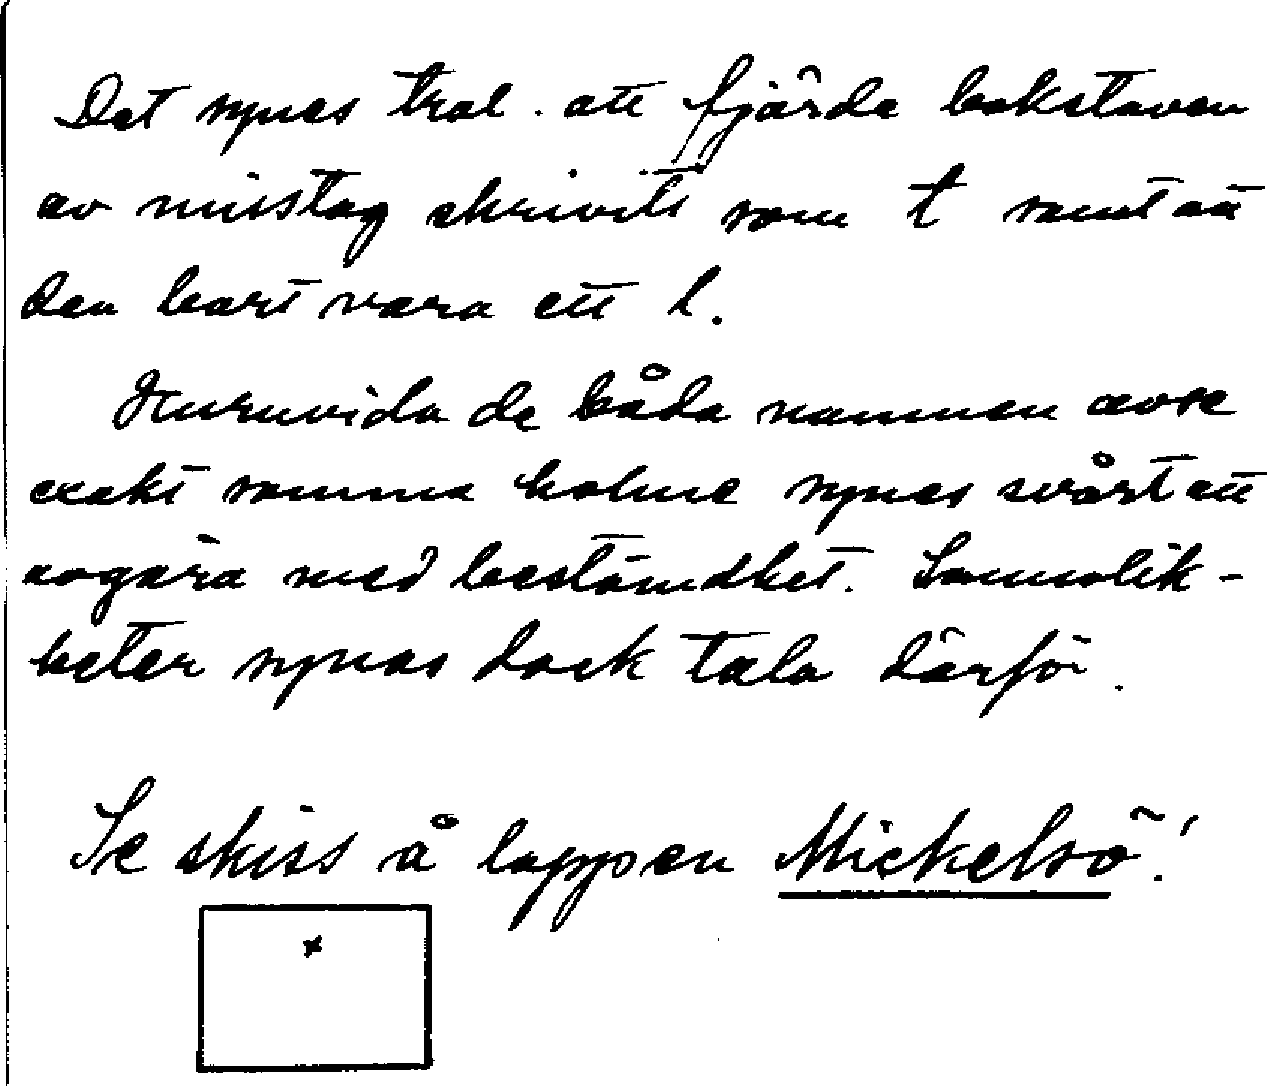 Det synes trol. att fjärde bokstaven
av misstag skrivits som t samt att
den bort vara ett l.
Huruvida de båda namnen avse
exakt samma holme synes svårt att
avgöra med bestämdhet. Sannolik-
heter synas dock tala därför.
Se skiss å lappen Mickelsö!
x